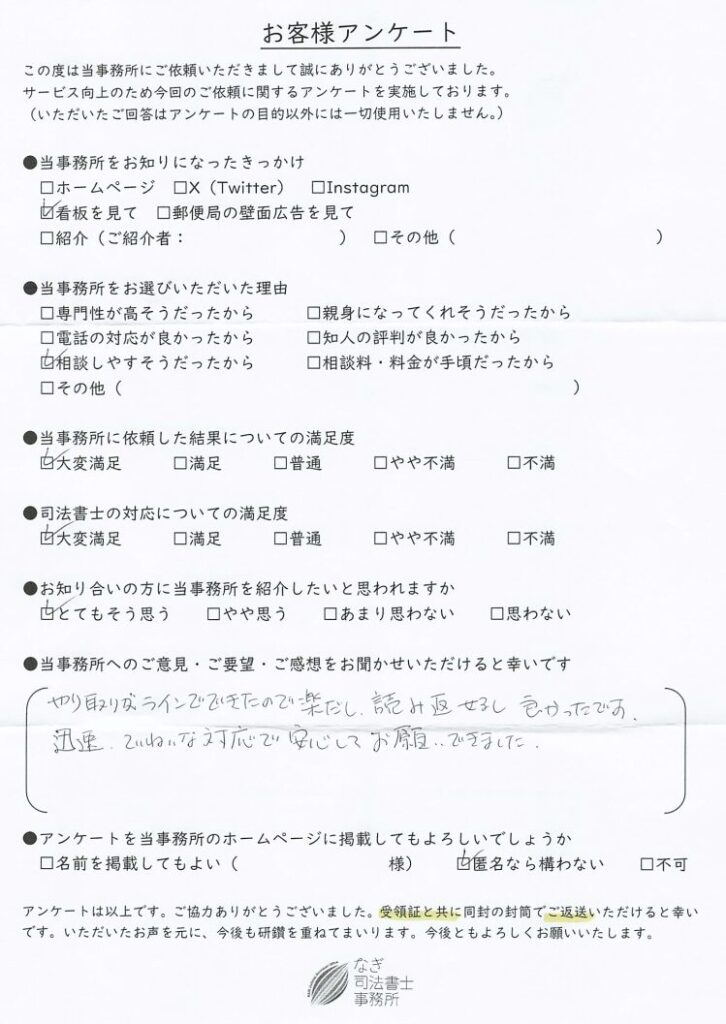 お客様アンケート
この度は当事務所にご依頼いただきまして誠にありがとうございました。
サービス向上のため今回のご依頼に関するアンケートを実施しております。
（いただいたご回答はアンケートの目的以外には一切使用いたしません。）
●当事務所をお知りになったきっかけ
□ホームページ □X（Twitter） □Instagram
☑看板を見て □郵便局の壁面広告を見て
□紹介（ご紹介者： ） □その他（ ）
●当事務所をお選びいただいた理由
□専門性が高そうだったから □親身になってくれそうだったから
□電話の対応が良かったから □知人の評判が良かったから
☑相談しやすそうだったから □相談料・料金が手頃だったから
□その他（ ）
●当事務所に依頼した結果についての満足度
☑大変満足 □満足 □普通 □やや不満 □不満
●司法書士の対応についての満足度
☑大変満足 □満足 □普通 □やや不満 □不満
●お知り合いの方に当事務所を紹介したいと思われますか
☑とてもそう思う □やや思う □あまり思わない □思わない
●当事務所へのご意見・ご要望・ご感想をお聞かせいただけると幸いです
やり取りがラインでできたので楽だし、読み返せるし 良かったです。
迅速、ていねいな対応で安心してお願いできました。
●アンケートを当事務所のホームページに掲載してもよろしいでしょうか
□名前を掲載してもよい（ 様） ☑匿名なら構わない □不可
アンケートは以上です。ご協力ありがとうございました。受領証と共に同封の封筒でご返送いただけると幸い
です。いただいたお声を元に、今後も研鑽を重ねてまいります。今後ともよろしくお願いいたします。
なぎ
司法書士
事務所